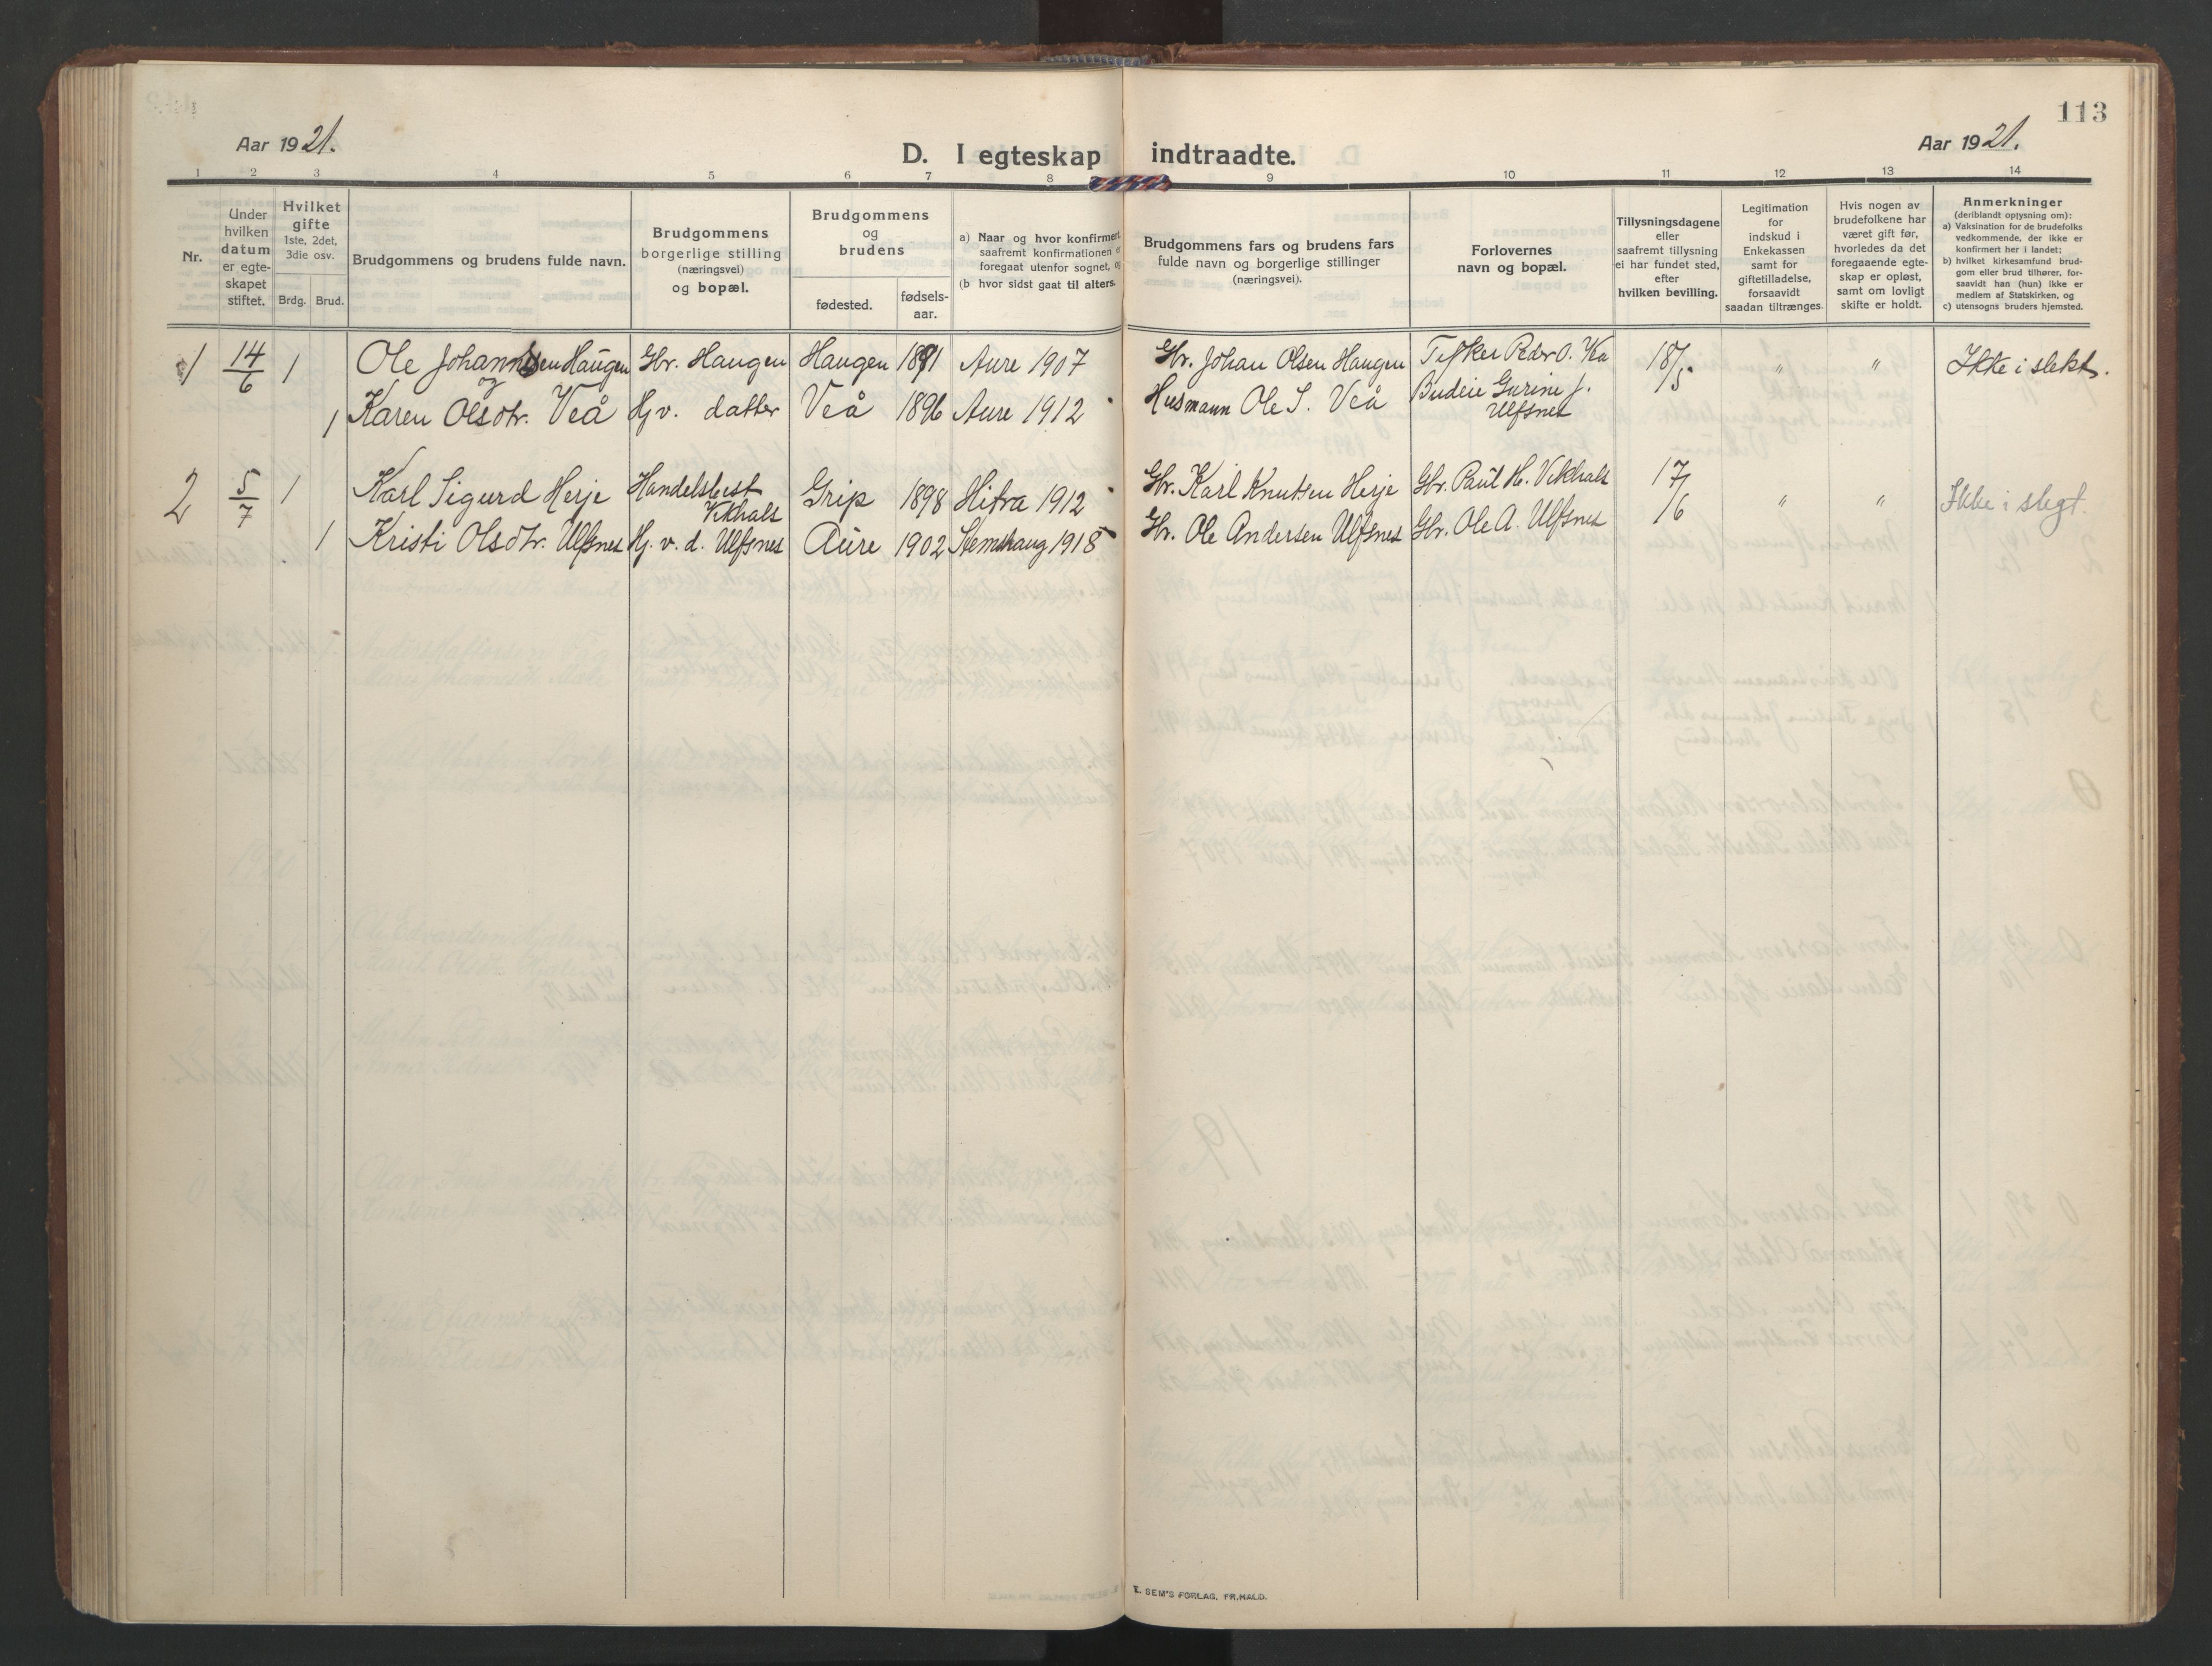 113
Aar 1921.
D. I egteskap indtraadte.
Aar 1921.
1 2 3 4 5 6 7 8 9 10 11 12 13 14
Nr.
Under
hvilken
datum
er egte-
skapet
stiftet.
Hvilket
gifte
1ste, 2det,
3die osv.
Brdg. Brud.
Brudgommens og brudens fulde navn.
Brudgommens
borgerlige stilling
(næringsvei)
og bopæl.
Brudgommens
og
brudens
fødested.
fødsels-
aar.
a) Naar og hvor konfirmert,
saafremt konfirmationen er
foregaat utenfor sognet, og
(b hvor sidst gaat til alters.
Brudgommens fars og brudens fars
fulde navn og borgerlige stillinger
(næringsvei).
Forlovernes
navn og bopæl.
Tillysningsdagene
eller
saafremt tillysning
ei har fundet sted,
efter
hvilken bevilling.
Legitimation
for
indskud i
Enkekassen
samt for
giftetilladelse,
forsaavidt
saadan tiltrænges.
Hvis nogen av
brudefolkene har
været gift før,
hvorledes da det
foregaaende egte-
skap er opløst,
samt om lovligt
skifte er holdt.
Anmerkninger
(deriblandt opiysning om):
a) Vaksination for de brudefolks
vedkommende, der ikke er
konfirmert her i landet;
b) hvilket kirkesamfund brud-
gom eller brud tilhører, for-
saavidt han (hun) ikke er
medlem af Statskirken, og
c) utensogns bruders hjemsted.
1 14/6 1 Ole Johannsen Haugen Gbr. Haugen Haugen 1891 Aure 1907 Gbr. Johan Olsen Haugen Peder O. Vea 18/5 " " Ikke i slekt.
og
1 Karen Olsdtr. Veå Hj v. datter Veå 1896 Aure 1912 Husmann Ole S. Veå Budeie Gurine J.
Ulfsnes
2 5/7 1 Karl Sigurd Herje Handelsbest Grip 1898 Hitra 1912 Gbr. Karl Knutsen Herje Gbr. Paul H. Vikhals 17/6 " " Ikke i slegt.
Vikhals
1 Kristi Olsdtr. Ulfsnes Hj. v. d. Ulfsnes Aure 1902 Stemshaug 1918 Gbr. Ole Andersen Ulfsnes Gbr. Ole A. Ulfsnes
E. SEM'S FORLAG, FR.HALD.